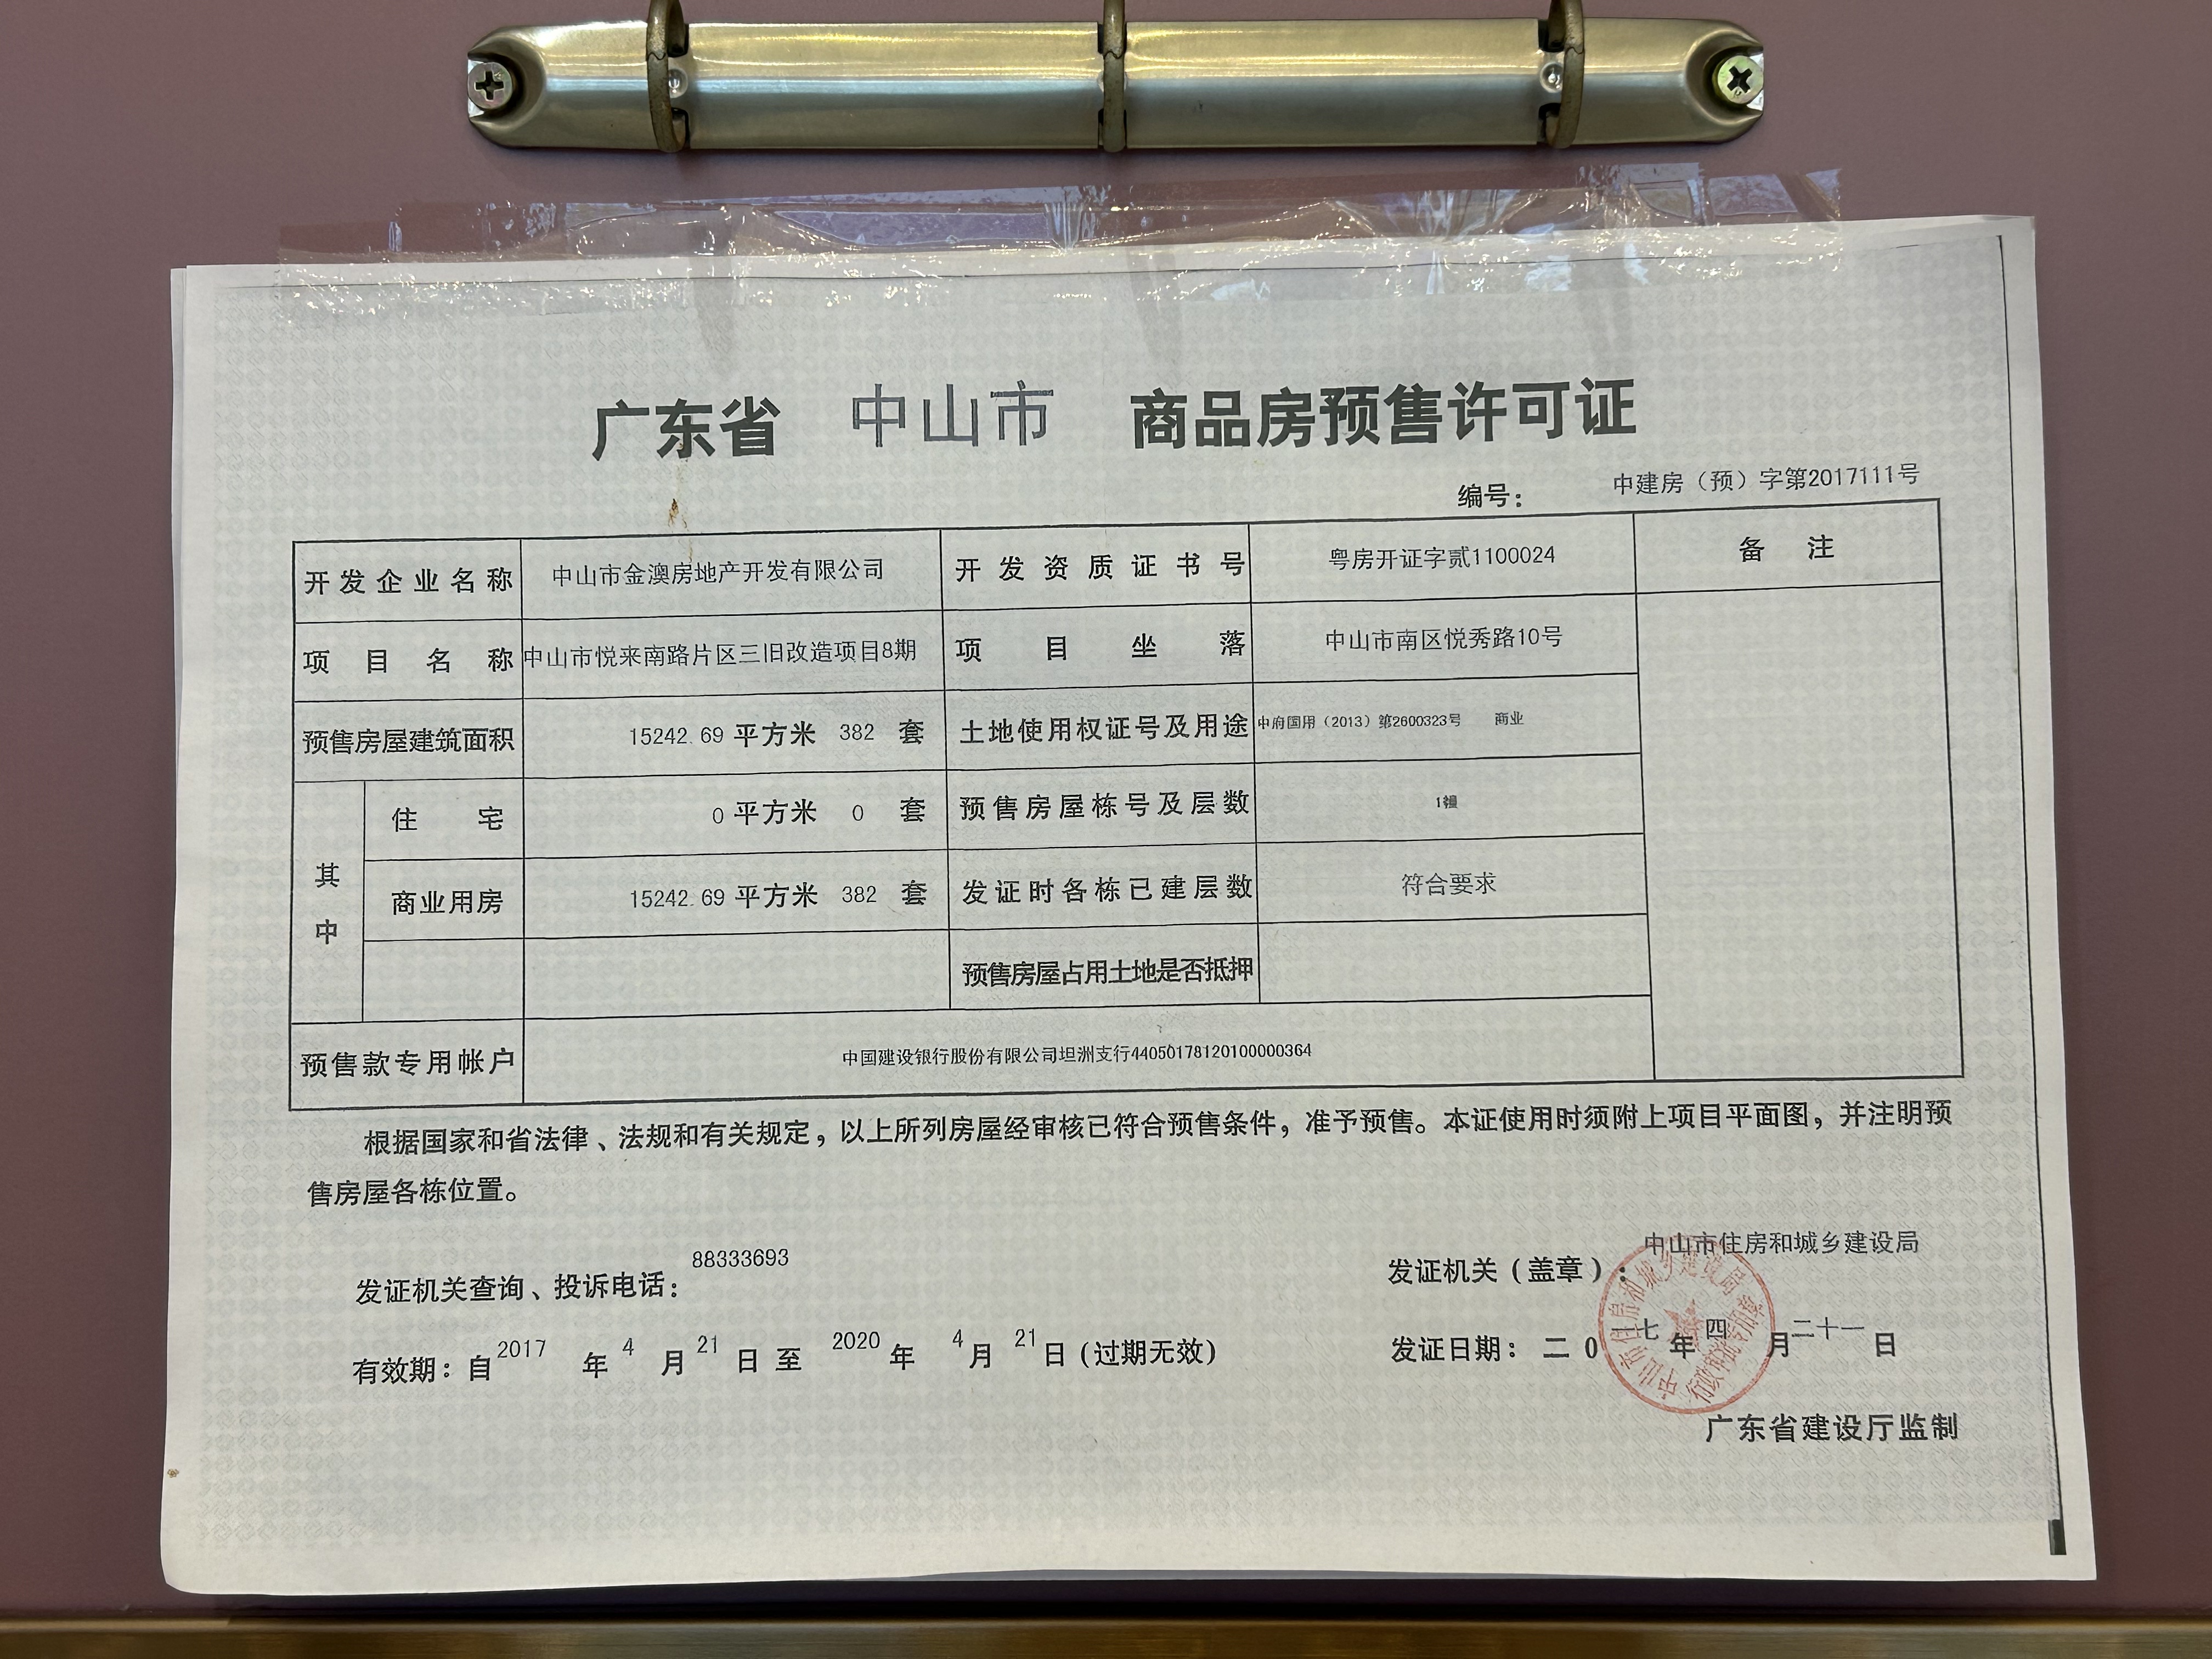 广东省 中山市 商品房预售许可证
编号： 中建房（预）字第2017111号
开发企业名称 中山市金澳房地产开发有限公司 开发资质证书号 粤房开证字贰1100024 备注
项目名称 中山市悦来南路片区三旧改造项目8期 项目坐落 中山市南区悦秀路10号
预售房屋建筑面积 15242.69 平方米 382 套 土地使用权证号及用途 中府国用（2013）第2600323号 商业
其中 住宅 0 平方米 0 套 预售房屋栋号及层数 1幢
商业用房 15242.69 平方米 382 套 发证时各栋已建层数 符合要求
预售房屋占用土地是否抵押
预售款专用帐户 中国建设银行股份有限公司坦洲支行44050178120100000364
根据国家和省法律、法规和有关规定，以上所列房屋经审核已符合预售条件，准予预售。本证使用时须附上项目平面图，并注明预
售房屋各栋位置。
发证机关查询、投诉电话：88333693 发证机关（盖章）：中山市住房和城乡建设局
有效期：自2017年4月21日至2020年4月21日(过期无效) 发证日期：二0一七年四月二十一日
中山市住房和城乡建设局
行政审批专用章
广东省建设厅监制